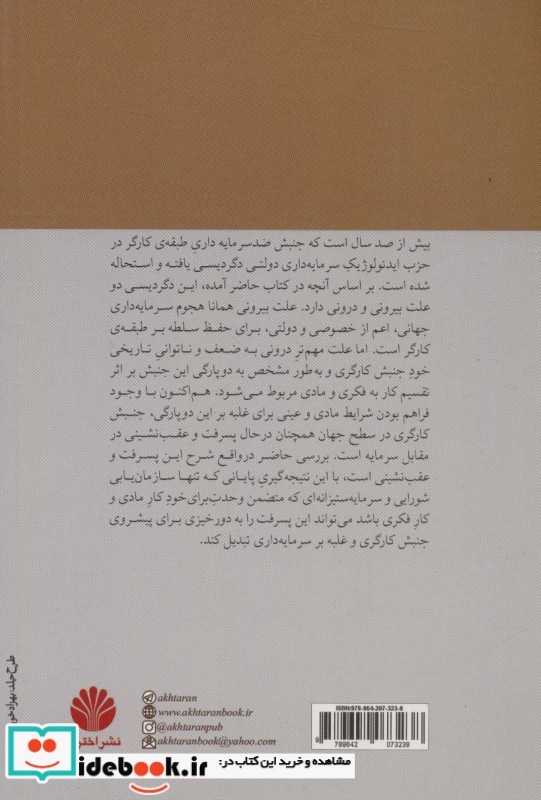 بیش از صد سال است که جنبش ضدسرمایه داریِ طبقه‌ی کارگر در
حزب ایدئولوژیکِ سرمایه‌داری دولتی دگردیسی یافته و استحاله
شده است. بر اساس آنچه در کتاب حاضر آمده، این دگردیسی دو
علت بیرونی و درونی دارد. علت بیرونی همانا هجوم سرمایه‌داری
جهانی، اعم از خصوصی و دولتی، برای حفظ سلطه بر طبقه‌ی
کارگر است. اما علت مهم‌ترِ درونی به ضعف و ناتوانیِ تاریخی
خودِ جنبش کارگری و به‌طور مشخص به دوپارگی این جنبش بر اثر
تقسیم کار به فکری و مادی مربوط می‌شود. هم‌اکنون با وجود
فراهم بودن شرایط مادی و عینی برای غلبه بر این دوپارگی، جنبش
کارگری در سطح جهان همچنان درحال پسرفت و عقب‌نشینی در
مقابل سرمایه است. بررسی حاضر درواقع شرح این پسرفت و
عقب‌نشینی است، با این نتیجه‌گیریِ پایانی که تنها سازمان‌یابی
شورایی و سرمایه‌ستیزانه‌ای که متضمن وحدتِ‌برای‌خودِ کارِ مادی و
کارِ فکری باشد می‌تواند این پسرفت را به دورخیزی برای پیشروی
جنبش کارگری و غلبه بر سرمایه‌داری تبدیل کند.
طرح جلد: بهزاد
akhtaran
www.akhtaranbook.ir
@akhtaranpub
akhtaranbook@yahoo.com
نشر
ISBN:978-964-207-323-8
9 789642 073238
idebook.ir
مشاهده و خرید این کتاب در: